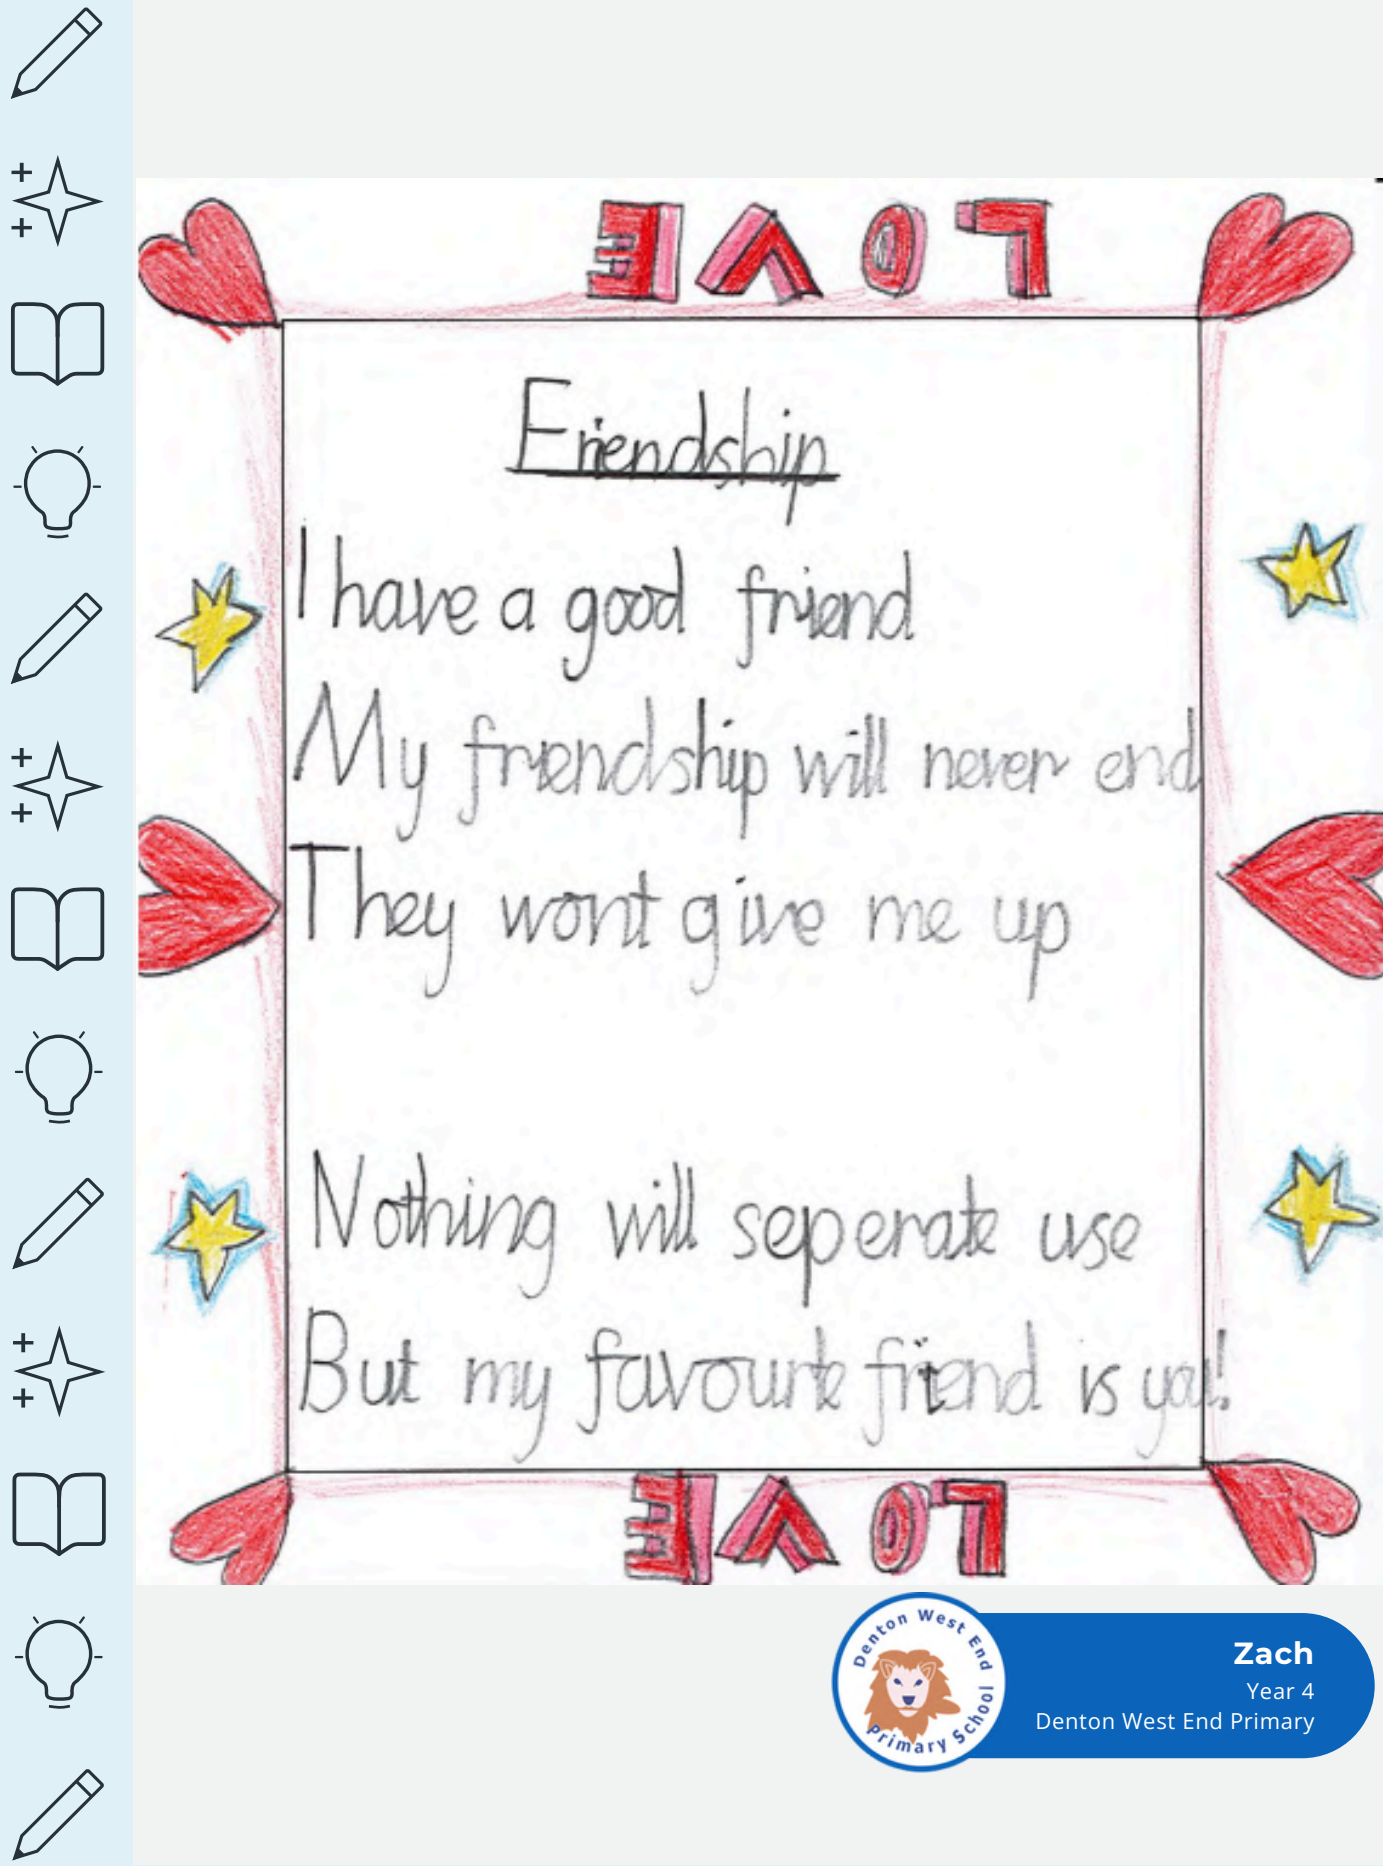 LOVE
Friendship
I have a good friend
My friendship will never end
They wont give me up
Nothing will seperate use
But my favourite friend is you!
LOVE
Denton West End Primary School
Zach
Year 4
Denton West End Primary